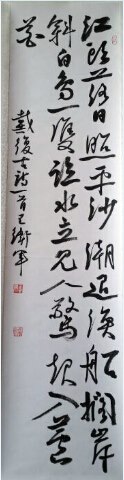 江頭落日照平沙潮退漁船擱岸
斜白鳥一雙臨水立見人驚起入蘆
花
戴復古詩一首衛軍